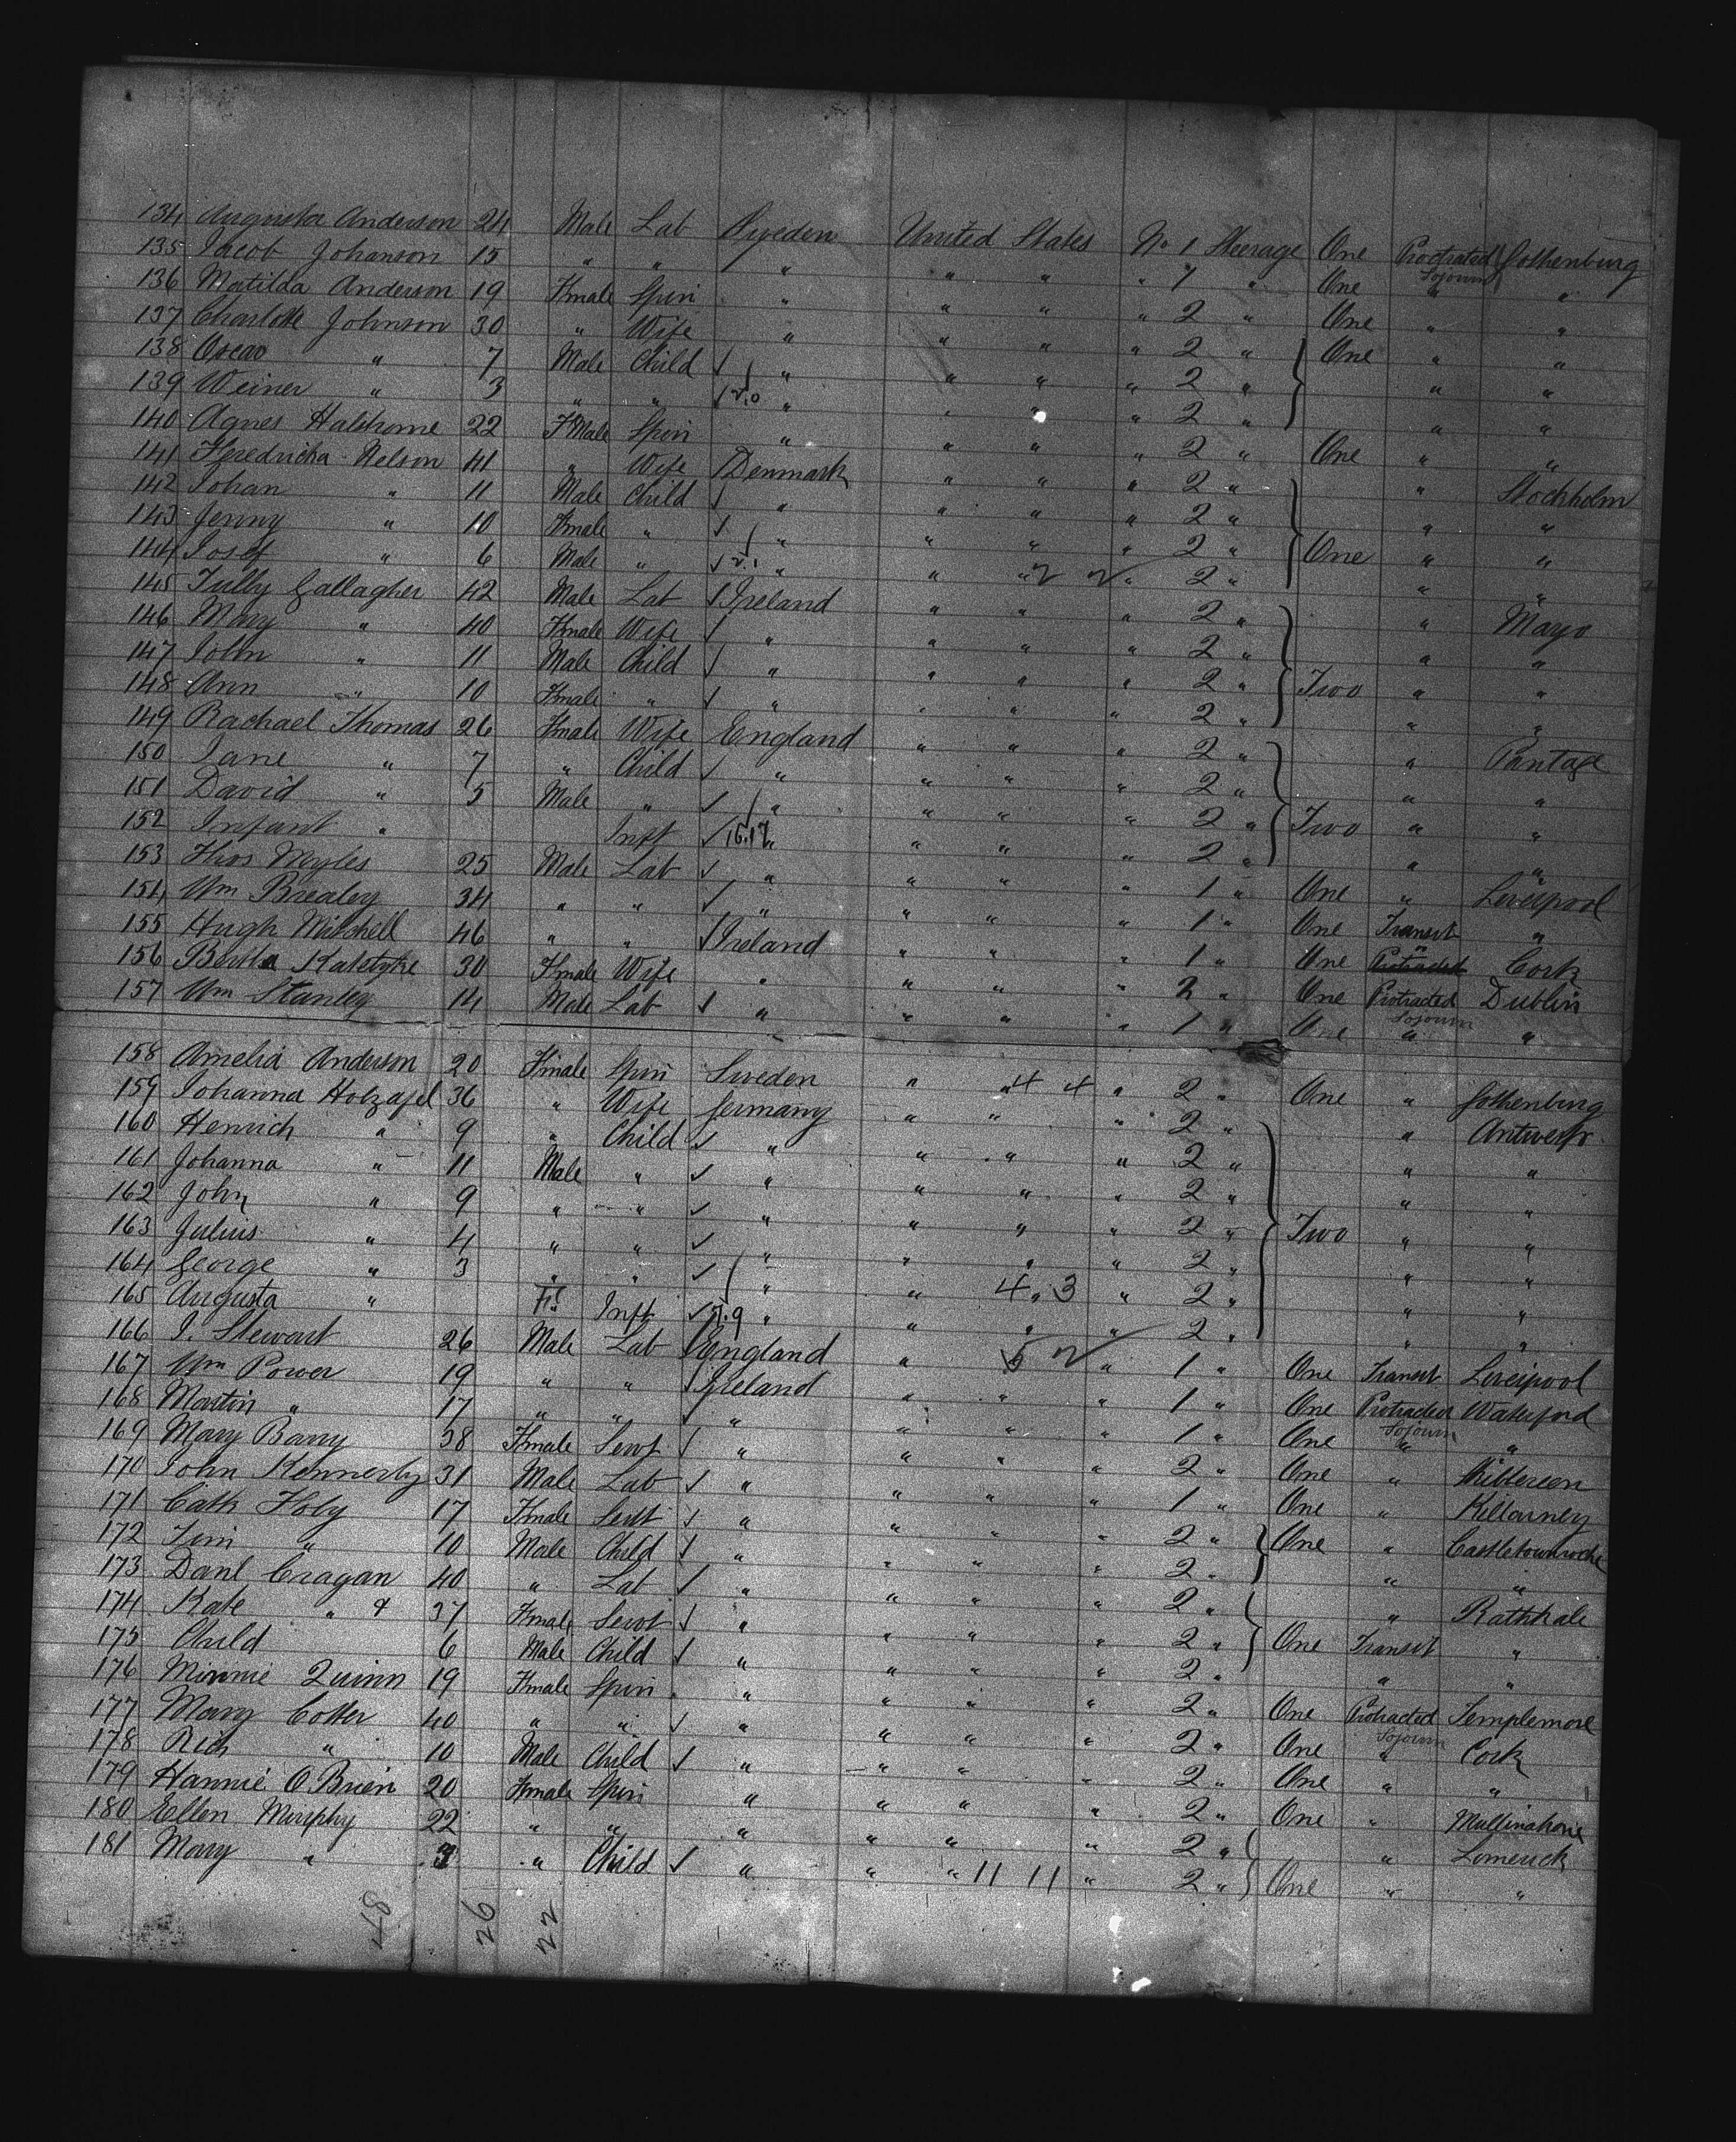 134 Augusta Anderson 24 Male Lab Sweden United States No 1 Steerage One Proctrated Sojourn Gothenburg
135 Jacob Johanson 15 " " " " " " 1 " One " "
136 Matilda Anderson 19 Fmale Spin " " " " 2 " One " "
137 Charlotte Johnson 30 " Wife " " " " 2 " One " "
138 Oscar " 7 Male Child √ " " " " 2 " " "
139 Weiner " 3 " " √ " " " " 2 " " "
140 Agnes Halshome 22 FMale Spin " " " " 2 " One " "
141 Fredricka Nelson 41 " Wife Denmark " " " 2 " " Stockholm
142 Johan " 11 Male Child √ " " " " 2 " " "
143 Jenny " 10 Fmale " √ " " " " 2 " One " "
144 Josef " 6 Male " √ 2.1 " " " 2 2 " 2 " " "
145 Tully Gallagher 42 Male Lab √ Ireland " " " 2 " " Mayo
146 Mary " 40 Fmale Wife √ " " " " 2 " " "
147 John " 11 Male Child √ " " " " 2 " Two " "
148 Ann " 10 Fmale " √ " " " " 2 " " "
149 Rachael Thomas 26 Fmale Wife England " " " 2 " " Pantage
150 Jane " 7 " Child √ " " " " 2 " " "
151 David " 5 Male " √ " " " " 2 " Two " "
152 Infant " Inft √ 16.17 " " " " 2 " " "
153 Thos Myles 25 Male Lab √ " " " " 1 " One " Liverpool
154 Wm Brealey 34 " " √ " " " " 1 " One Transit "
155 Hugh Mitchell 46 " " √ Ireland " " " 1 " One " Cork
156 Bertha 30 Fmale Wife " " " " 2 " One Protracted Sojourn Dublin
157 Wm Stanley 14 Male Lab √ " " " " 1 " One " "
158 Amelia Anderson 20 Fmale Spin Sweden " " 4 4 " 2 " One " Gothenburg
159 Johanna Holzapel 36 " Wife Germany " " " 2 " " Antwerp
160 Henrich " 9 " Child √ " " " " 2 " " "
161 Johanna " 11 Male " √ " " " " 2 " " "
162 John " 9 " " √ " " " " 2 " Two " "
163 Julius " 4 " " √ " " " " 2 " " "
164 George " 3 " " √ " " 4 " 3 " 2 " " "
165 Augusta " Fe Inft √ " " " " 2 " " "
166 J. Stewart 26 Male Lab √ England " 5 2 " 1 " One Transit Liverpool
167 Wm Power 19 " " √ Ireland " " " 1 " One Protracted Sojourn Waterford
168 Martin " 17 " " √ " " " " 1 " One " "
169 Mary Barry 38 Fmale Servt √ " " " " 2 " One " Skibbereen
170 John Kennerly 31 Male Lab √ " " " " 1 " One " Killarney
171 Cath Foly 17 Fmale Servt √ " " " " 2 " One " Castletownroche
172 Jim " 10 Male Child √ " " " " 2 " " "
173 Danl Cragan 40 " Lab √ " " " " 2 " " Rathkale
174 Kate " & 37 Fmale Servt √ " " " " 2 " One Transit "
175 Child 6 Male Child √ " " " " 2 " " "
176 Minnie Quinn 19 Fmale Spin " " " " 2 " One Protracted Sojourn Templemore
177 Mary Cotter 40 " " √ " " " " 2 " One " Cork
178 Rich " 10 Male Child √ " " " " 2 " One " "
179 Hannie O Brien 20 Fmale Spin " " " " 2 " One " Mullinahone
180 Ellen Murphy 22 " " " " " " 2 " " Limerick
181 Mary " 3 " Child √ " " " 11 11 " 2 " One " "
48 26 22